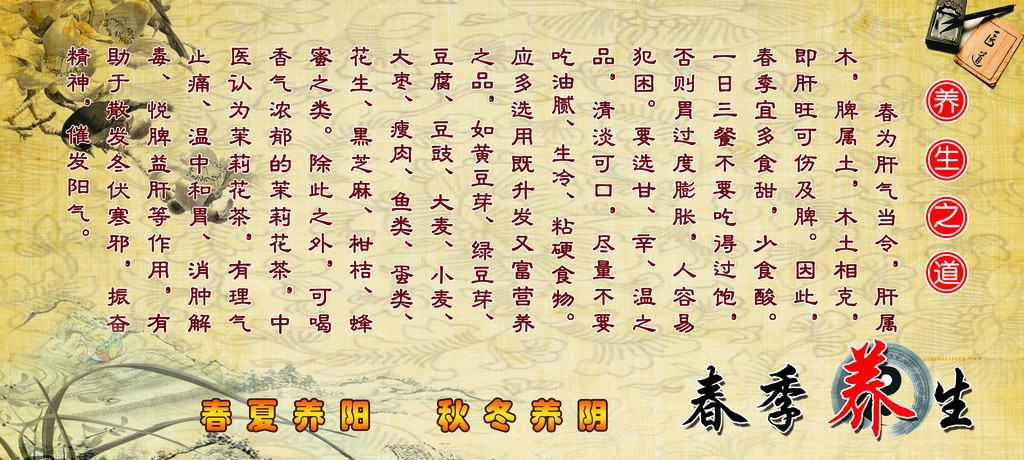 养生之道
春为肝气当令，肝属
木，脾属土，木土相克，
即肝旺可伤及脾。因此，
春季宜多食甜，少食酸。
一日三餐不要吃得过饱，
否则胃过度膨胀，人容易
犯困。要选甘、辛、温之
品，清淡可口，尽量不要
吃油腻、生冷、粘硬食物。
应多选用既升发又富营养
之品，如黄豆芽、绿豆芽、
豆腐、豆豉、大麦、小麦、
大枣、瘦肉、鱼类、蛋类、
花生、黑芝麻、柑桔、蜂
蜜之类。除此之外，可喝
香气浓郁的茉莉花茶，中
医认为茉莉花茶，有理气
止痛、温中和胃、消肿解
毒、悦脾益肝等作用，有
助于散发冬伏寒邪，振奋
精神，催发阳气。
医道
春季养生
春夏养阳 秋冬养阴